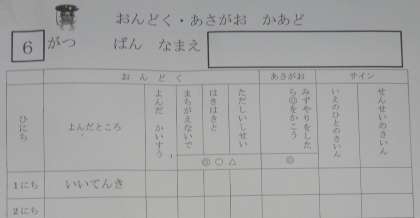 おんどく・あさがお かあど
6 がつ ばん なまえ
おんどく
あさがお
サイン
ひにち
よんだところ
よんだ かいすう
まちがえないで
はきはきと
ただしいしせい
みずやりをした
ら◎をかこう
いえのひとのさいん
せんせいのさいん
◎○△
◎
1にち いいてんき
2にち